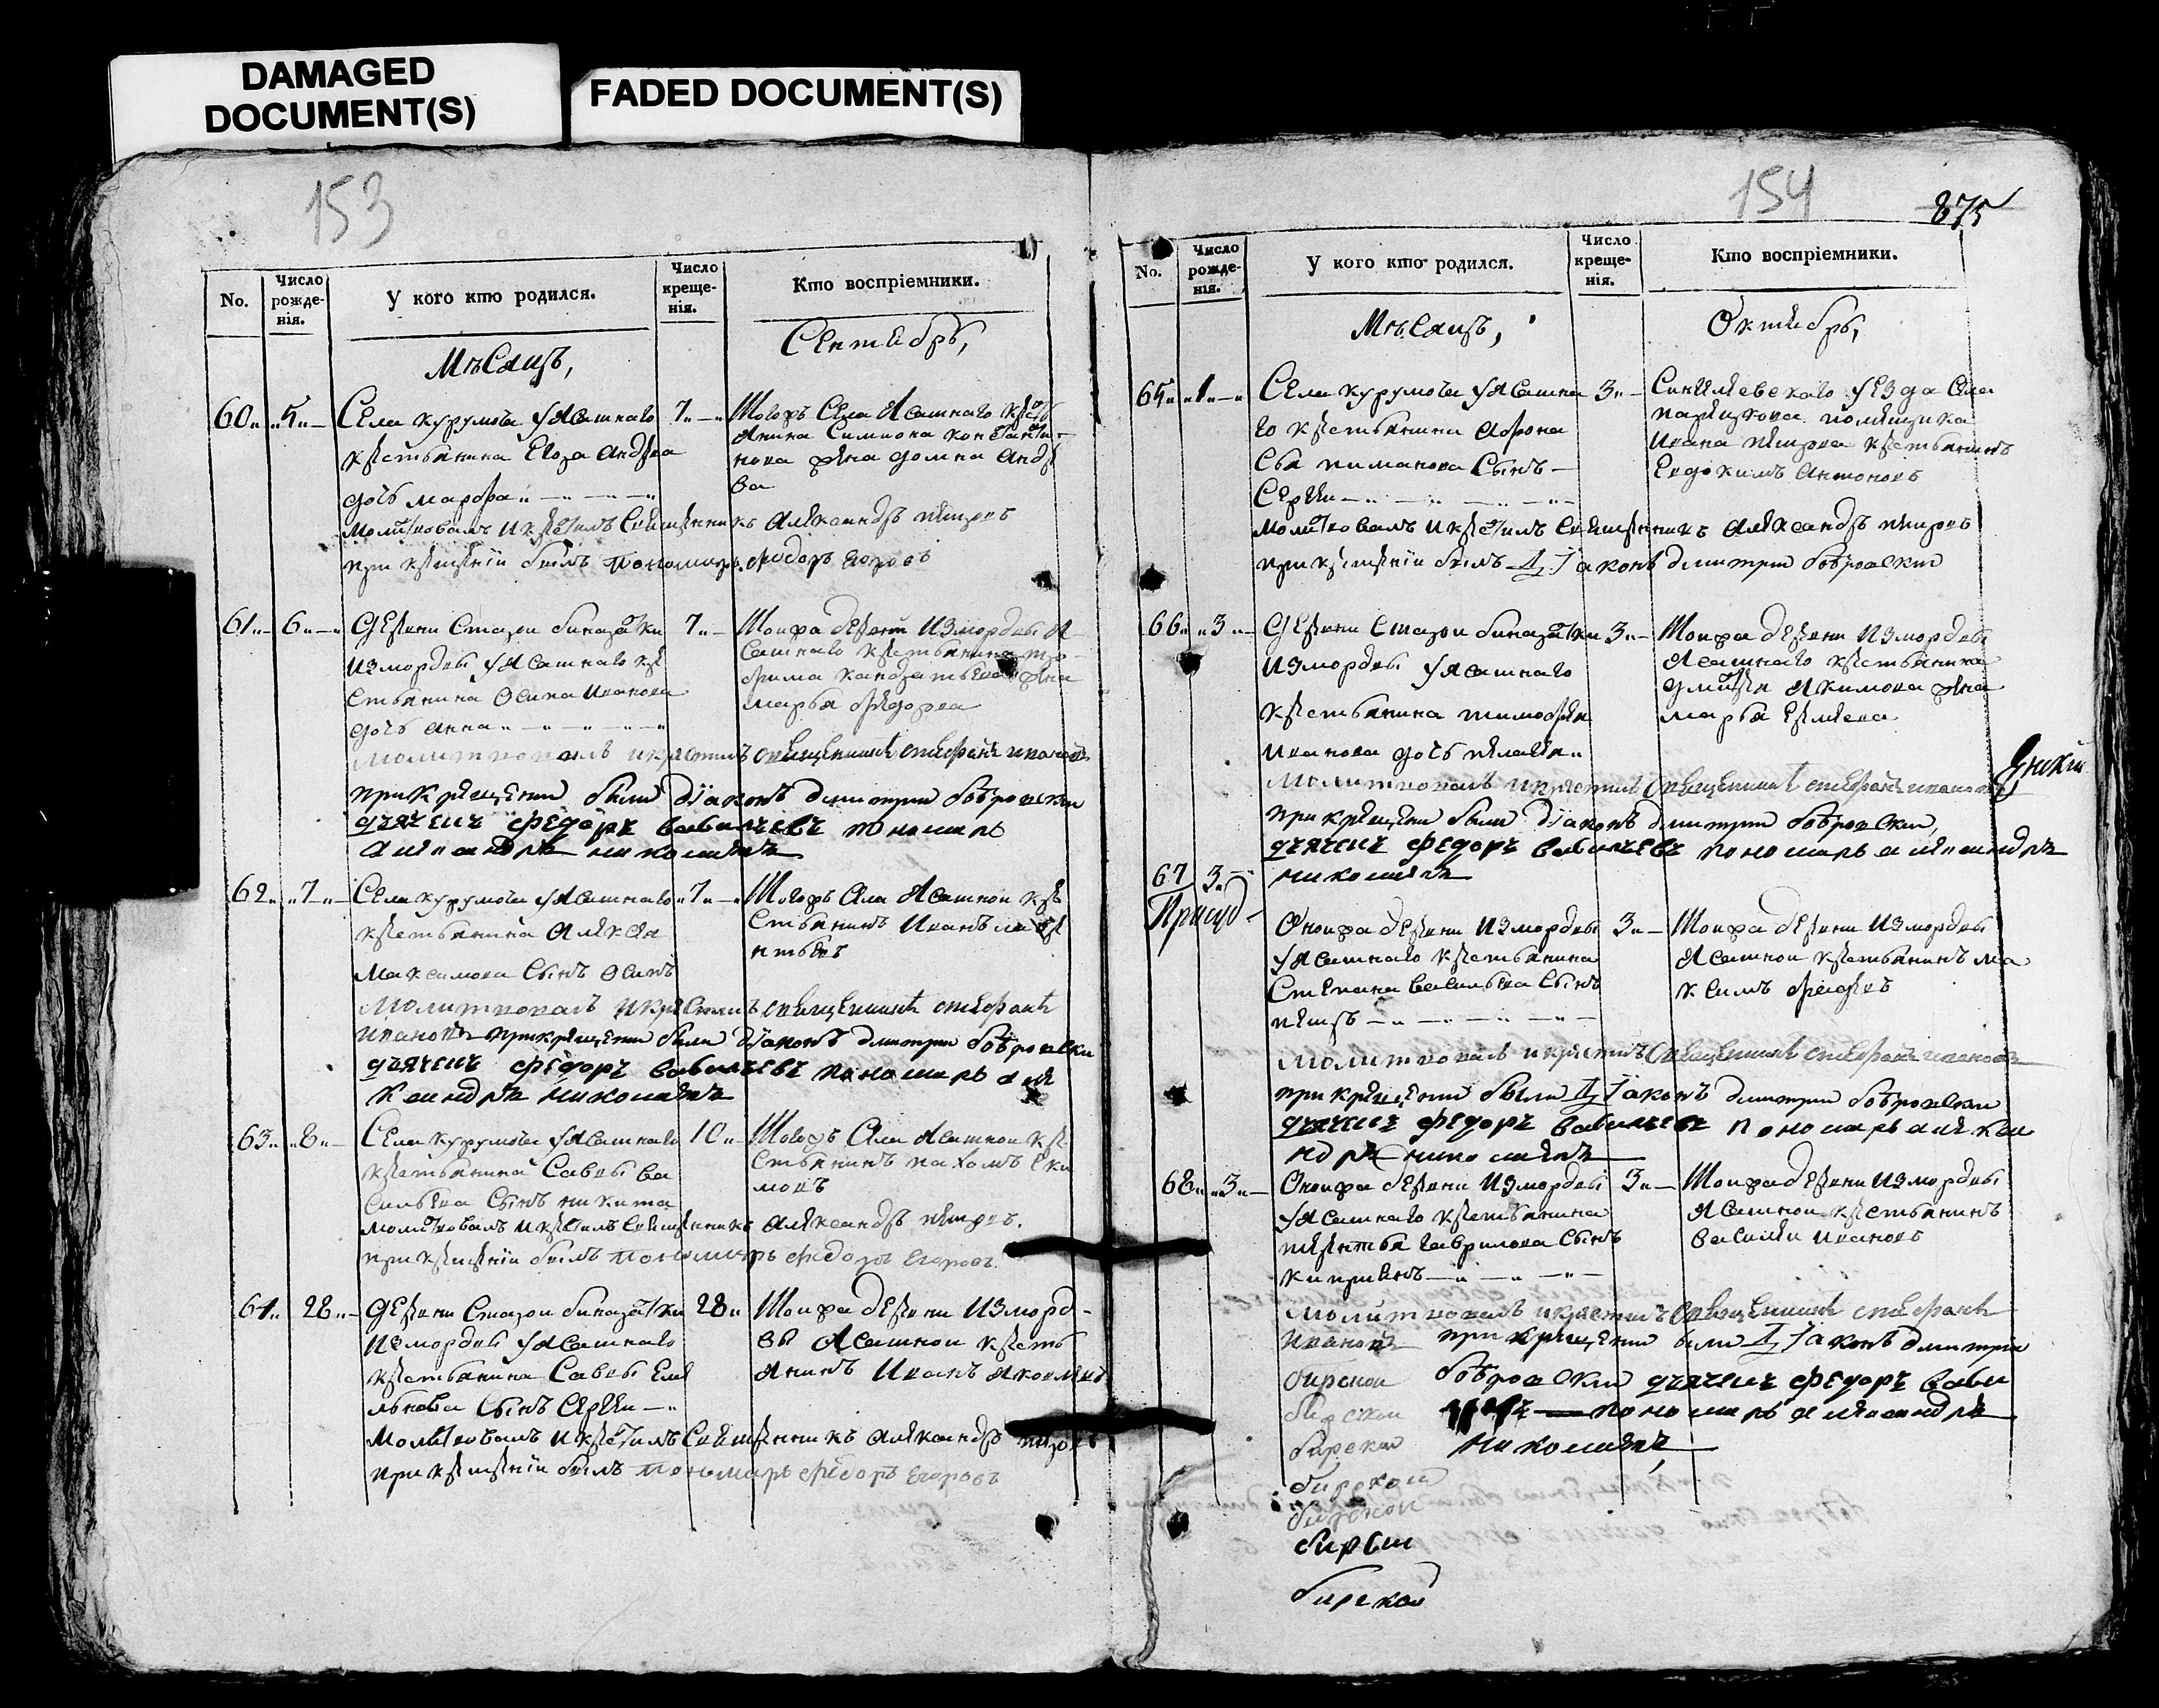 DAMAGED
DOCUMENT(S)
FADED DOCUMENT(S)
153
No.
Число рожде-нія.
У кого кто родился.
Число креще-нія.
Кто воспріемники.
Мѣсяцъ,
Сентябрь,
60 5 Села курумоча уясашнаго
крестьянина Егора Андрея
дочь марфа
7 Тогожъ Села Ясашнаго крестьянина Симиона константи-
нова жена домна Андре
ва
молитвовалъ и крестилъ Священникъ Александръ петровъ
при крещеніи былъ пономарь Федоръ Егоровъ
61 6 Деревни Старой бинарадки
измордвы уясашнаго кре
стьянина Осипа Иванова
дочь анна
7 Тоижа деревни Измордвы Я
сашнаго крестьянина
жена
марья федорова
молитвовалъ и крестилъ священникъ стефанъ ивановъ
при крещении были діаконъ димитри бобровски
дьячекъ федоръ васильевъ пономарь
александръ николаевъ
62 7 Села курумоча уясашнаго
крестьянина Алексея
Максимова Сынъ Осипъ
7 Тогожъ Села Ясашнои кре
стьянинъ Иванъ
молитвовалъ и крестилъ священникъ стефанъ
ивановъ при крещении были діаконъ димитри бобровски
дьячекъ федоръ васильевъ пономарь але
ксандръ николаевъ
63 8 Села курумоча уясашнаго
крестьянина Савы ва
сильева Сынъ никита
10 Тогожъ Села Ясашнои кре
стьянинъ пахомъ Еки
мовъ
молитвовалъ и крестилъ Священникъ Александръ петровъ.
при крещеніи былъ пономарь Федоръ Егоровъ.
64 28 Деревни Старой бинарадки
Измордвы уясашнаго
крестьянина Савы Еме
льянова Сынъ Сергеи
28 Тоижа деревни Изморд-
вы Ясашнои кресть
янинъ Иванъ Якимовъ
Молитвовалъ и крестилъ Священникъ Александръ петровъ
при крещеніи былъ пономарь Федоръ Егоровъ
154
875
No.
Число рожде-нія.
У кого кто родился.
Число креще-нія.
Кто воспріемники.
Мѣсяцъ,
Октябрь,
65 1 Села курумоча уясашна
го крестьянина Афона
Сынъ
Сергеи
3 Сингилевскаго уезда Села
помещика
Ивана петрова крестьянинъ
Евдокимъ Антоновъ
молитвовалъ и крестилъ Священникъ Александръ петровъ
при крещеніи былъ Діаконъ димитри бобровски
66 3 Деревни Старой бинарадки
измордвы уясашнаго
крестьянина тимофея
Иванова дочь пелагея
3 Тоижа деревни Измордвы
Ясашнаго крестьянина
дмитрея Якимова жена
марья
молитвовалъ и крестилъ священникъ стефанъ ивановъ
при крещени были діаконъ димитри бобровски,
дьячекъ федоръ васильевъ пономарь александръ
николаевъ
67 3 Онойжа деревни Измордвы
уясашнаго крестьянина
Степана васильева Сынъ
петръ
3 Тоижа деревни Измордвы
Ясашнои крестьянинъ ма
ксимъ
молитвовалъ и крестилъ священникъ стефанъ ивановъ
при крещении были Діаконъ димитри бобровски
дьячекъ федоръ васильевъ пономарь алекса
ндръ николаевъ
68 3 Онойжа деревни Измордвы
уясашнаго крестьянина
гаврилова Сынъ
киприянъ
3 Тоижа деревни Измордвы
Ясашнои крестьянинъ
василеи ивановъ
молитвовалъ и крестилъ священникъ стефанъ
ивановъ при крещени были Діаконъ димитри
бобровски дьячекъ федоръ васи
пономарь александръ
николаевъ,
бирскои
бирскои
бирскои
бирскои
бирскои
бирски
бирскои